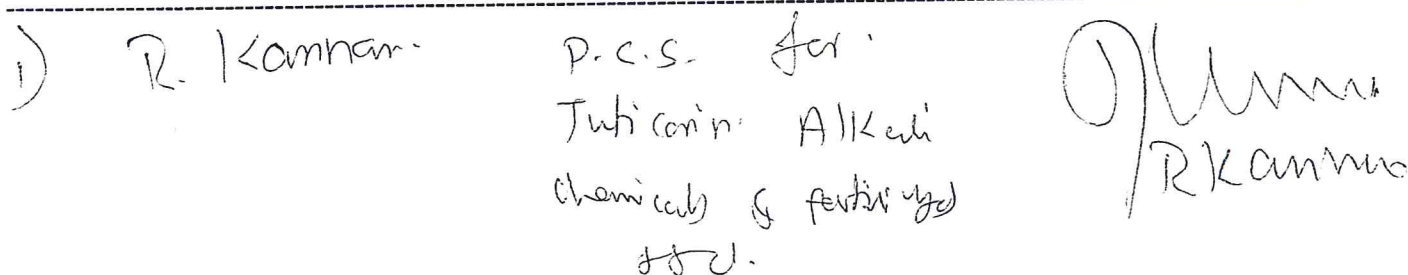 1) R. Kannan. P.C.S. for
Tuticorin Alkali
chemicals & fertilizers
Ltd.
R Kannan